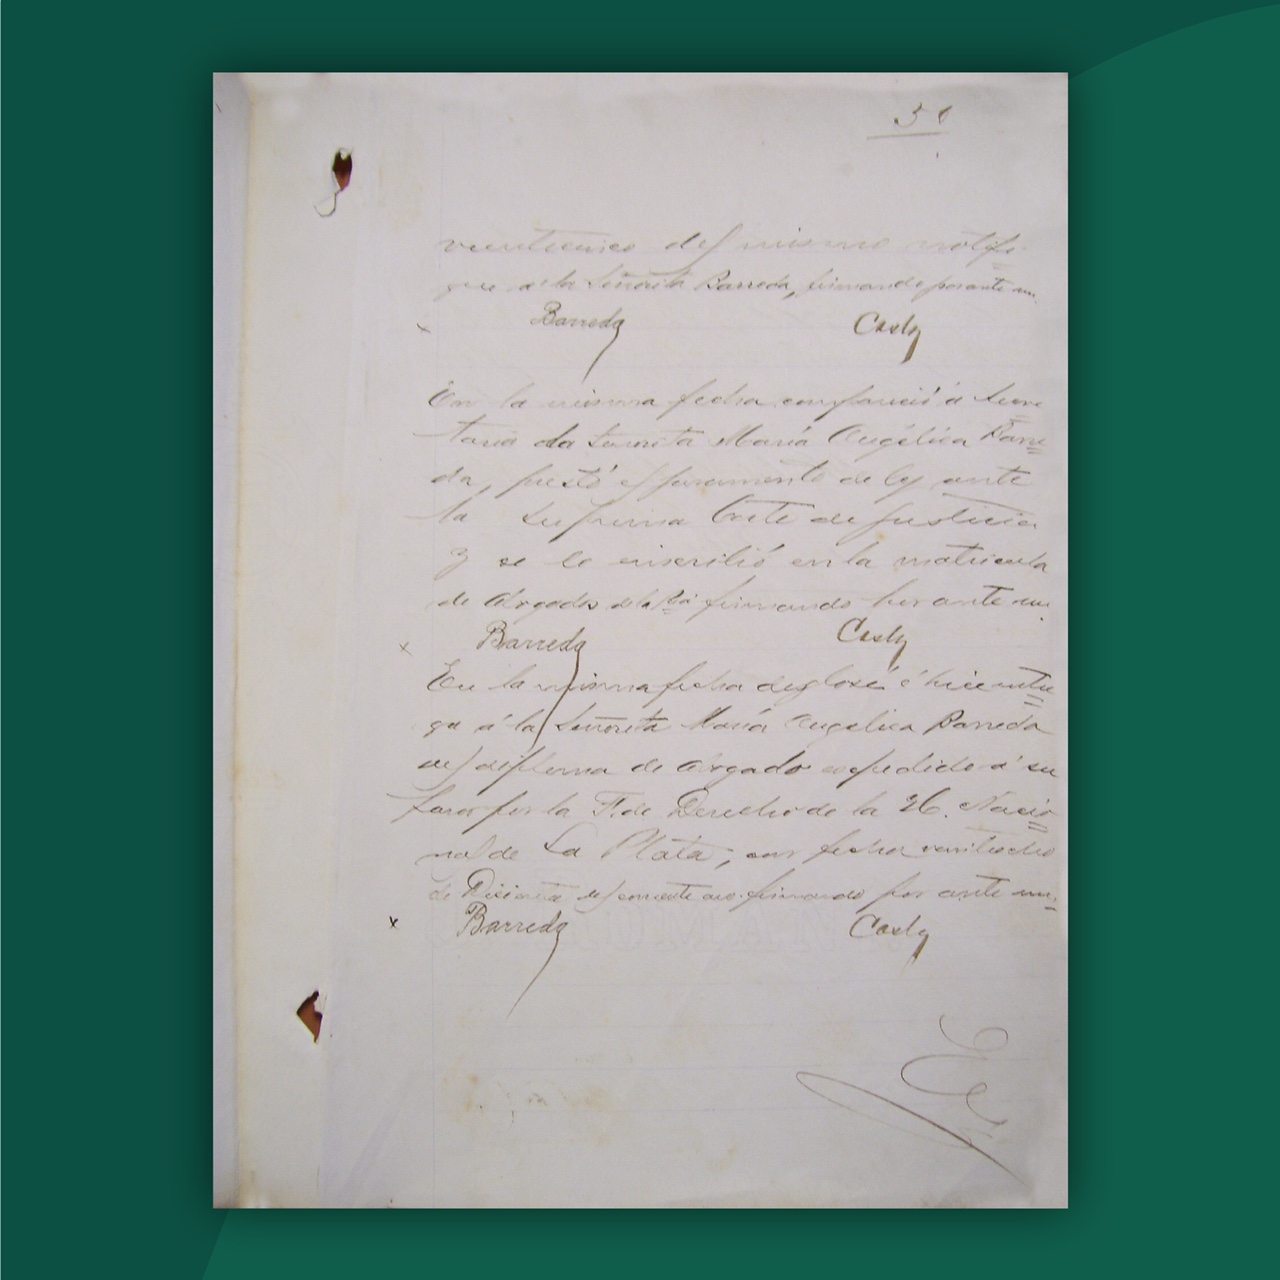 veinticinco del mismo notifi=
que a la Señorita Barreda, firmando por ante mi.
Barreda Casly
En la misma fecha compareció á Secre=
taria la Señorita María Angélica Barre=
da, prestó el juramento de ley ante
la Suprema Corte de Justicia
y se le inscribió en la matricula
de Abogados de la Pcia firmando por ante mi.
Barreda Casly
En la misma fecha desglosé é hice entre=
ga á la Señorita María Angélica Barreda
del diploma de Abogado expedido á su
favor por la F. de Derecho de la U. Nacio=
nal de La Plata, con fecha veintiocho
de del corriente año firmando por ante mi.
Barreda Casly